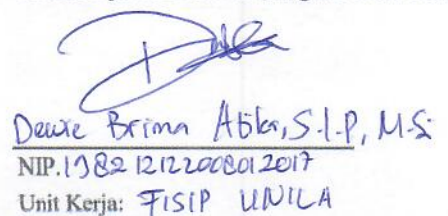 Dewie Brima Atika, S.I.P, M.Si
NIP.198212122008012017
Unit Kerja: FISIP UNILA